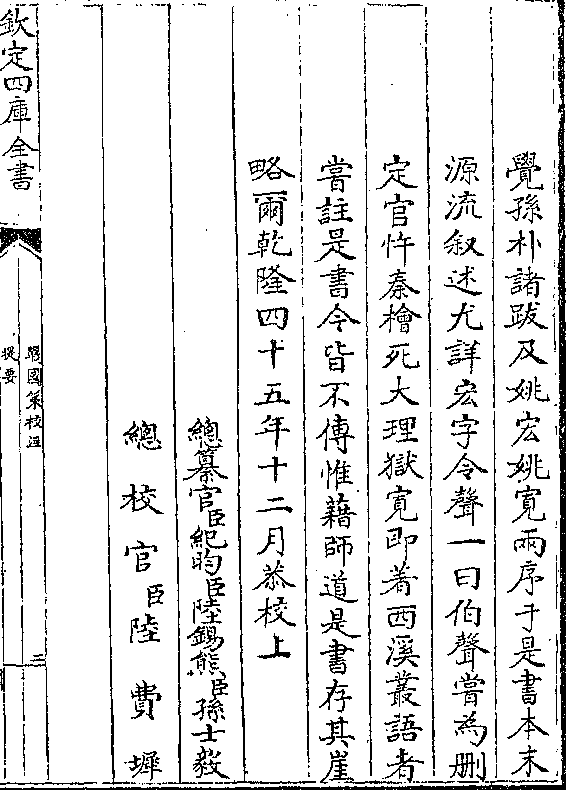 覺孫朴諸跋及姚宏姚寬兩序于是書本末
源流叙述尤詳宏字令聲一曰伯聲嘗為删
定官忤秦檜死大理獄寛即著西溪叢語者
嘗註是書今皆不傳惟藉師道是書存其崖
略爾乾隆四十五年十二月恭校上
總纂官臣紀昀臣陸錫熊臣孫士毅
總校官臣陸費墀
欽定四庫全書
戰國策校注
提要
三